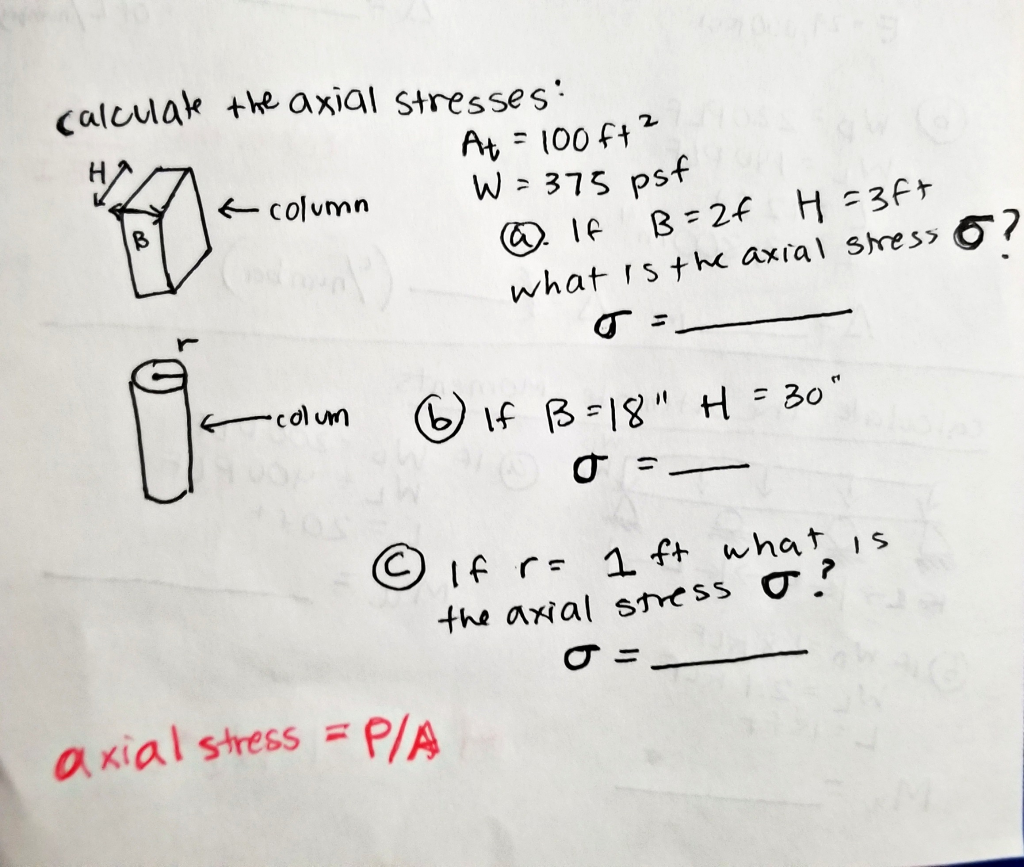 calculate the axial stresses:
At = 100 ft²
W = 375 psf
H
B
← column
(a). If B = 2f H = 3ft
what is the axial stress σ?
σ =
r
← colum
(b) If B = 18" H = 30"
σ =
(c) If r = 1 ft what is
the axial stress σ?
σ =
axial stress = P/A